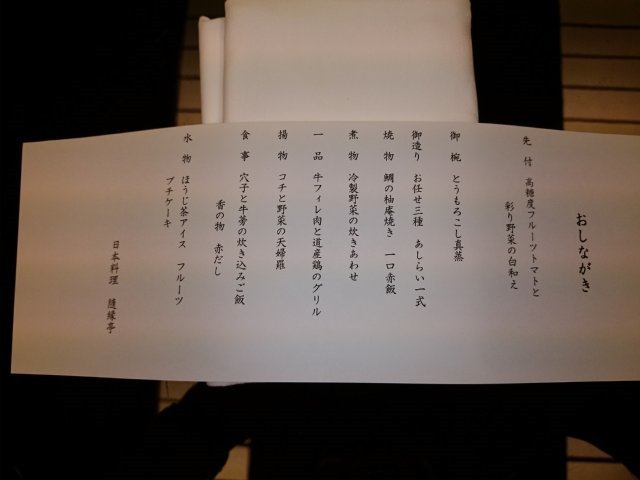 おしながき
先付 高糖度フルーツトマトと
彩り野菜の白和え
御椀 とうもろこし真蒸
御造り お任せ三種 あしらい一式
焼物 鯛の柚庵焼き 一口赤飯
煮物 冷製野菜の炊きあわせ
一品 牛フィレ肉と道産鶏のグリル
揚物 コチと野菜の天婦羅
食事 穴子と牛蒡の炊き込みご飯
香の物 赤だし
水物 ほうじ茶アイス フルーツ
プチケーキ
日本料理 随縁亭